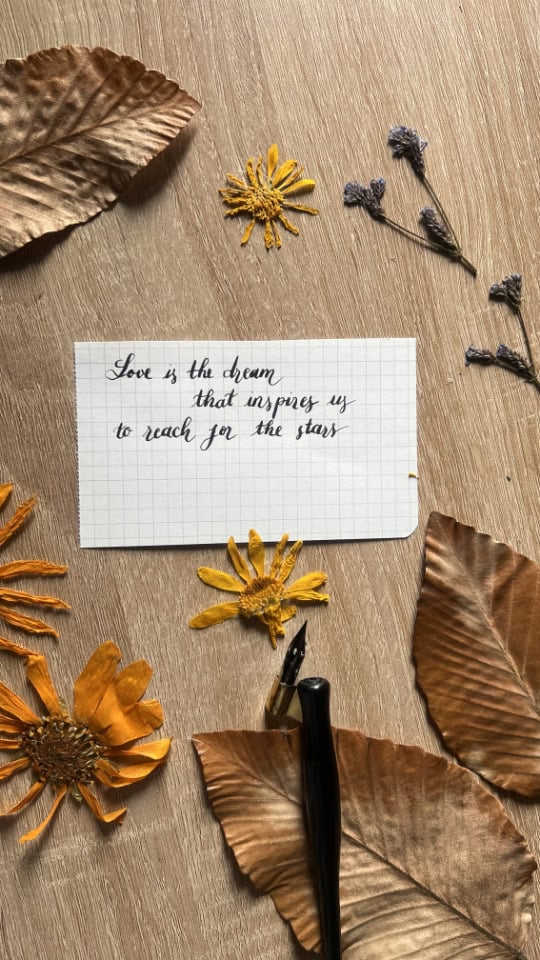 Love is the dream
that inspires us
to reach for the stars